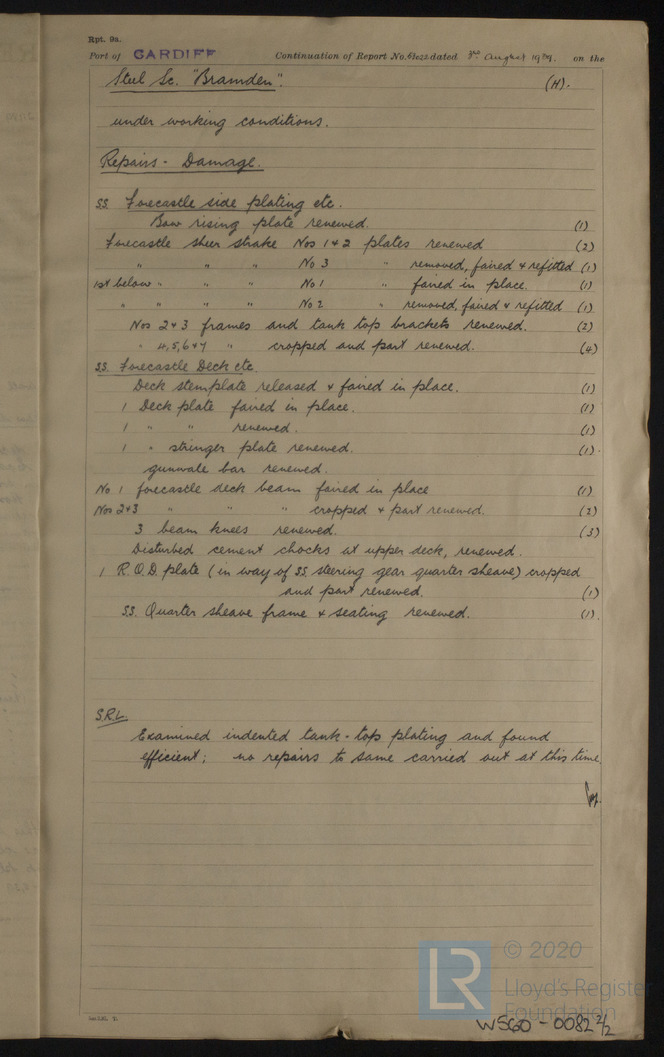 Rpt. 9a.
Port of CARDIFF Continuation of Report No. 51022 dated 3rd August 1939. on the
Steel Sc. "Bramden". (H).
under working conditions.
Repairs - Damage.
SS. Forecastle side plating etc.
Bow rising plate renewed. (1)
Forecastle sheer strake Nos 1 & 2 plates renewed (2)
" " " No 3 " removed, faired & refitted (1)
1st below " " " No 1 " faired in place. (1)
" " " " No 2 " removed, faired & refitted (1)
Nos 2 & 3 frames and tank top brackets renewed. (2)
" 4,5,6 & 7 " cropped and part renewed. (4)
SS. Forecastle Deck etc.
Deck stemplate released & faired in place. (1)
1 Deck plate faired in place. (1)
1 " " renewed. (1)
1 " stringer plate renewed. (1).
gunwale bar renewed.
No 1 forecastle deck beam faired in place (1)
Nos 2 & 3 " " " cropped & part renewed. (2)
3 beam knees renewed. (3)
Disturbed cement chocks at upper deck, renewed.
1 R.Q.D. plate (in way of SS. steering gear quarter sheave) cropped
and part renewed. (1)
SS. Quarter sheave frame & seating renewed. (1).
S.R.L.
Examined indented tank-top plating and found
efficient; no repairs to same carried out at this time
© 2020
Lloyd's Register
Foundation
W560-0082 2/2